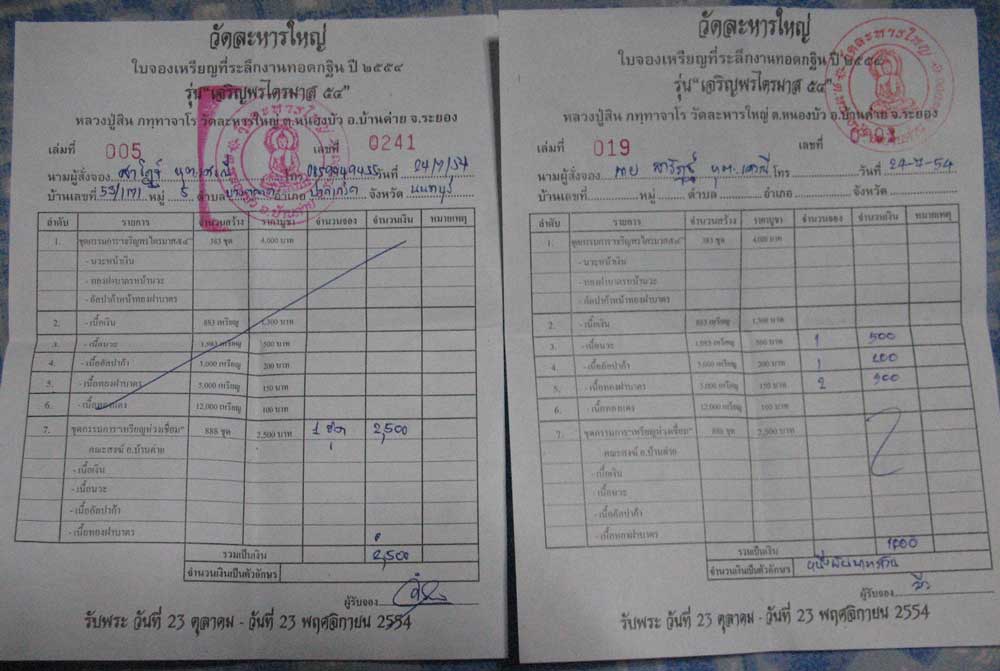 วัดละหารใหญ่
ใบจองเหรียญที่ระลึกงานทอดกฐิน ปี ๒๕๕๔
รุ่น"เจริญพรไตรมาส ๕๔"
หลวงปู่สิน ภทฺทาจาโร วัดละหารใหญ่ ต.หนองบัว อ.บ้านค่าย จ.ระยอง
เล่มที่ 005 เลขที่ 0241
นามผู้สั่งจอง โทร วันที่ 24/7/54
บ้านเลขที่ 55/171 หมู่ 5 ตำบล อำเภอ ปากเกร็ด จังหวัด นนทบุรี
ลำดับ รายการ จำนวนสร้าง ราคาบูชา จำนวนจอง จำนวนเงิน หมายเหตุ
1. ชุดกรรมการเจริญพรไตรมาส๕๔" 383 ชุด 4,000 บาท
- นวะหน้าเงิน
- ทองฝาบาตรหน้านวะ
- อัลปาก้าหน้าทองฝาบาตร
2. - เนื้อเงิน 883 เหรียญ 1,300 บาท
3. - เนื้อนวะ 1,983 เหรียญ 500 บาท
4. - เนื้ออัลปาก้า 3,000 เหรียญ 200 บาท
5. - เนื้อทองฝาบาตร 5,000 เหรียญ 150 บาท
6. - เนื้อทองแดง 12,000 เหรียญ 100 บาท
7. ชุดกรรมการ"เหรียญห่วงเชื่อม" 888 ชุด 2,500 บาท 1 ชุด 2,500
คณะสงฆ์ อ.บ้านค่าย
- เนื้อเงิน
- เนื้อนวะ
- เนื้ออัลปาก้า
- เนื้อทองฝาบาตร
รวมเป็นเงิน 2,500
จำนวนเงินเป็นตัวอักษร
ผู้รับจอง
รับพระ วันที่ 23 ตุลาคม - วันที่ 23 พฤศจิกายน 2554
วัดละหารใหญ่
ใบจองเหรียญที่ระลึกงานทอดกฐิน ปี ๒๕๕๔
รุ่น"เจริญพรไตรมาส ๕๔"
หลวงปู่สิน ภทฺทาจาโร วัดละหารใหญ่ ต.หนองบัว อ.บ้านค่าย จ.ระยอง
เล่มที่ 019 เลขที่
นามผู้สั่งจอง โทร วันที่ 24-7-54
บ้านเลขที่ หมู่ ตำบล อำเภอ จังหวัด
ลำดับ รายการ จำนวนสร้าง ราคาบูชา จำนวนจอง จำนวนเงิน หมายเหตุ
1. ชุดกรรมการเจริญพรไตรมาส๕๔" 383 ชุด 4,000 บาท
- นวะหน้าเงิน
- ทองฝาบาตรหน้านวะ
- อัลปาก้าหน้าทองฝาบาตร
2. - เนื้อเงิน 883 เหรียญ 1,300 บาท
3. - เนื้อนวะ 1,983 เหรียญ 500 บาท 1 500
4. - เนื้ออัลปาก้า 3,000 เหรียญ 200 บาท 1 200
5. - เนื้อทองฝาบาตร 5,000 เหรียญ 150 บาท 2 300
6. - เนื้อทองแดง 12,000 เหรียญ 100 บาท
7. ชุดกรรมการ"เหรียญห่วงเชื่อม" 888 ชุด 2,500 บาท
คณะสงฆ์ อ.บ้านค่าย
- เนื้อเงิน
- เนื้อนวะ
- เนื้ออัลปาก้า
- เนื้อทองฝาบาตร
รวมเป็นเงิน 1000
จำนวนเงินเป็นตัวอักษร หนึ่งพันบาทถ้วน
ผู้รับจอง
รับพระ วันที่ 23 ตุลาคม - วันที่ 23 พฤศจิกายน 2554